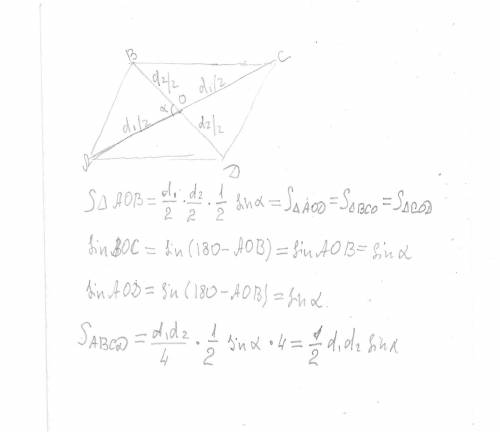 B
C
d₂/2
d₁/2
α
O
d₁/2
d₂/2
A
D
S△AOB = d₁/2 · d₂/2 · 1/2 sinα = S△AOD = S△BCO = S△COD
sin BOC = sin(180 - AOB) = sin AOB = sin α
sin AOD = sin(180 - AOB) = sin α.
S ABCD = d₁d₂/4 · 1/2 sin α · 4 = 1/2 d₁d₂ sin α